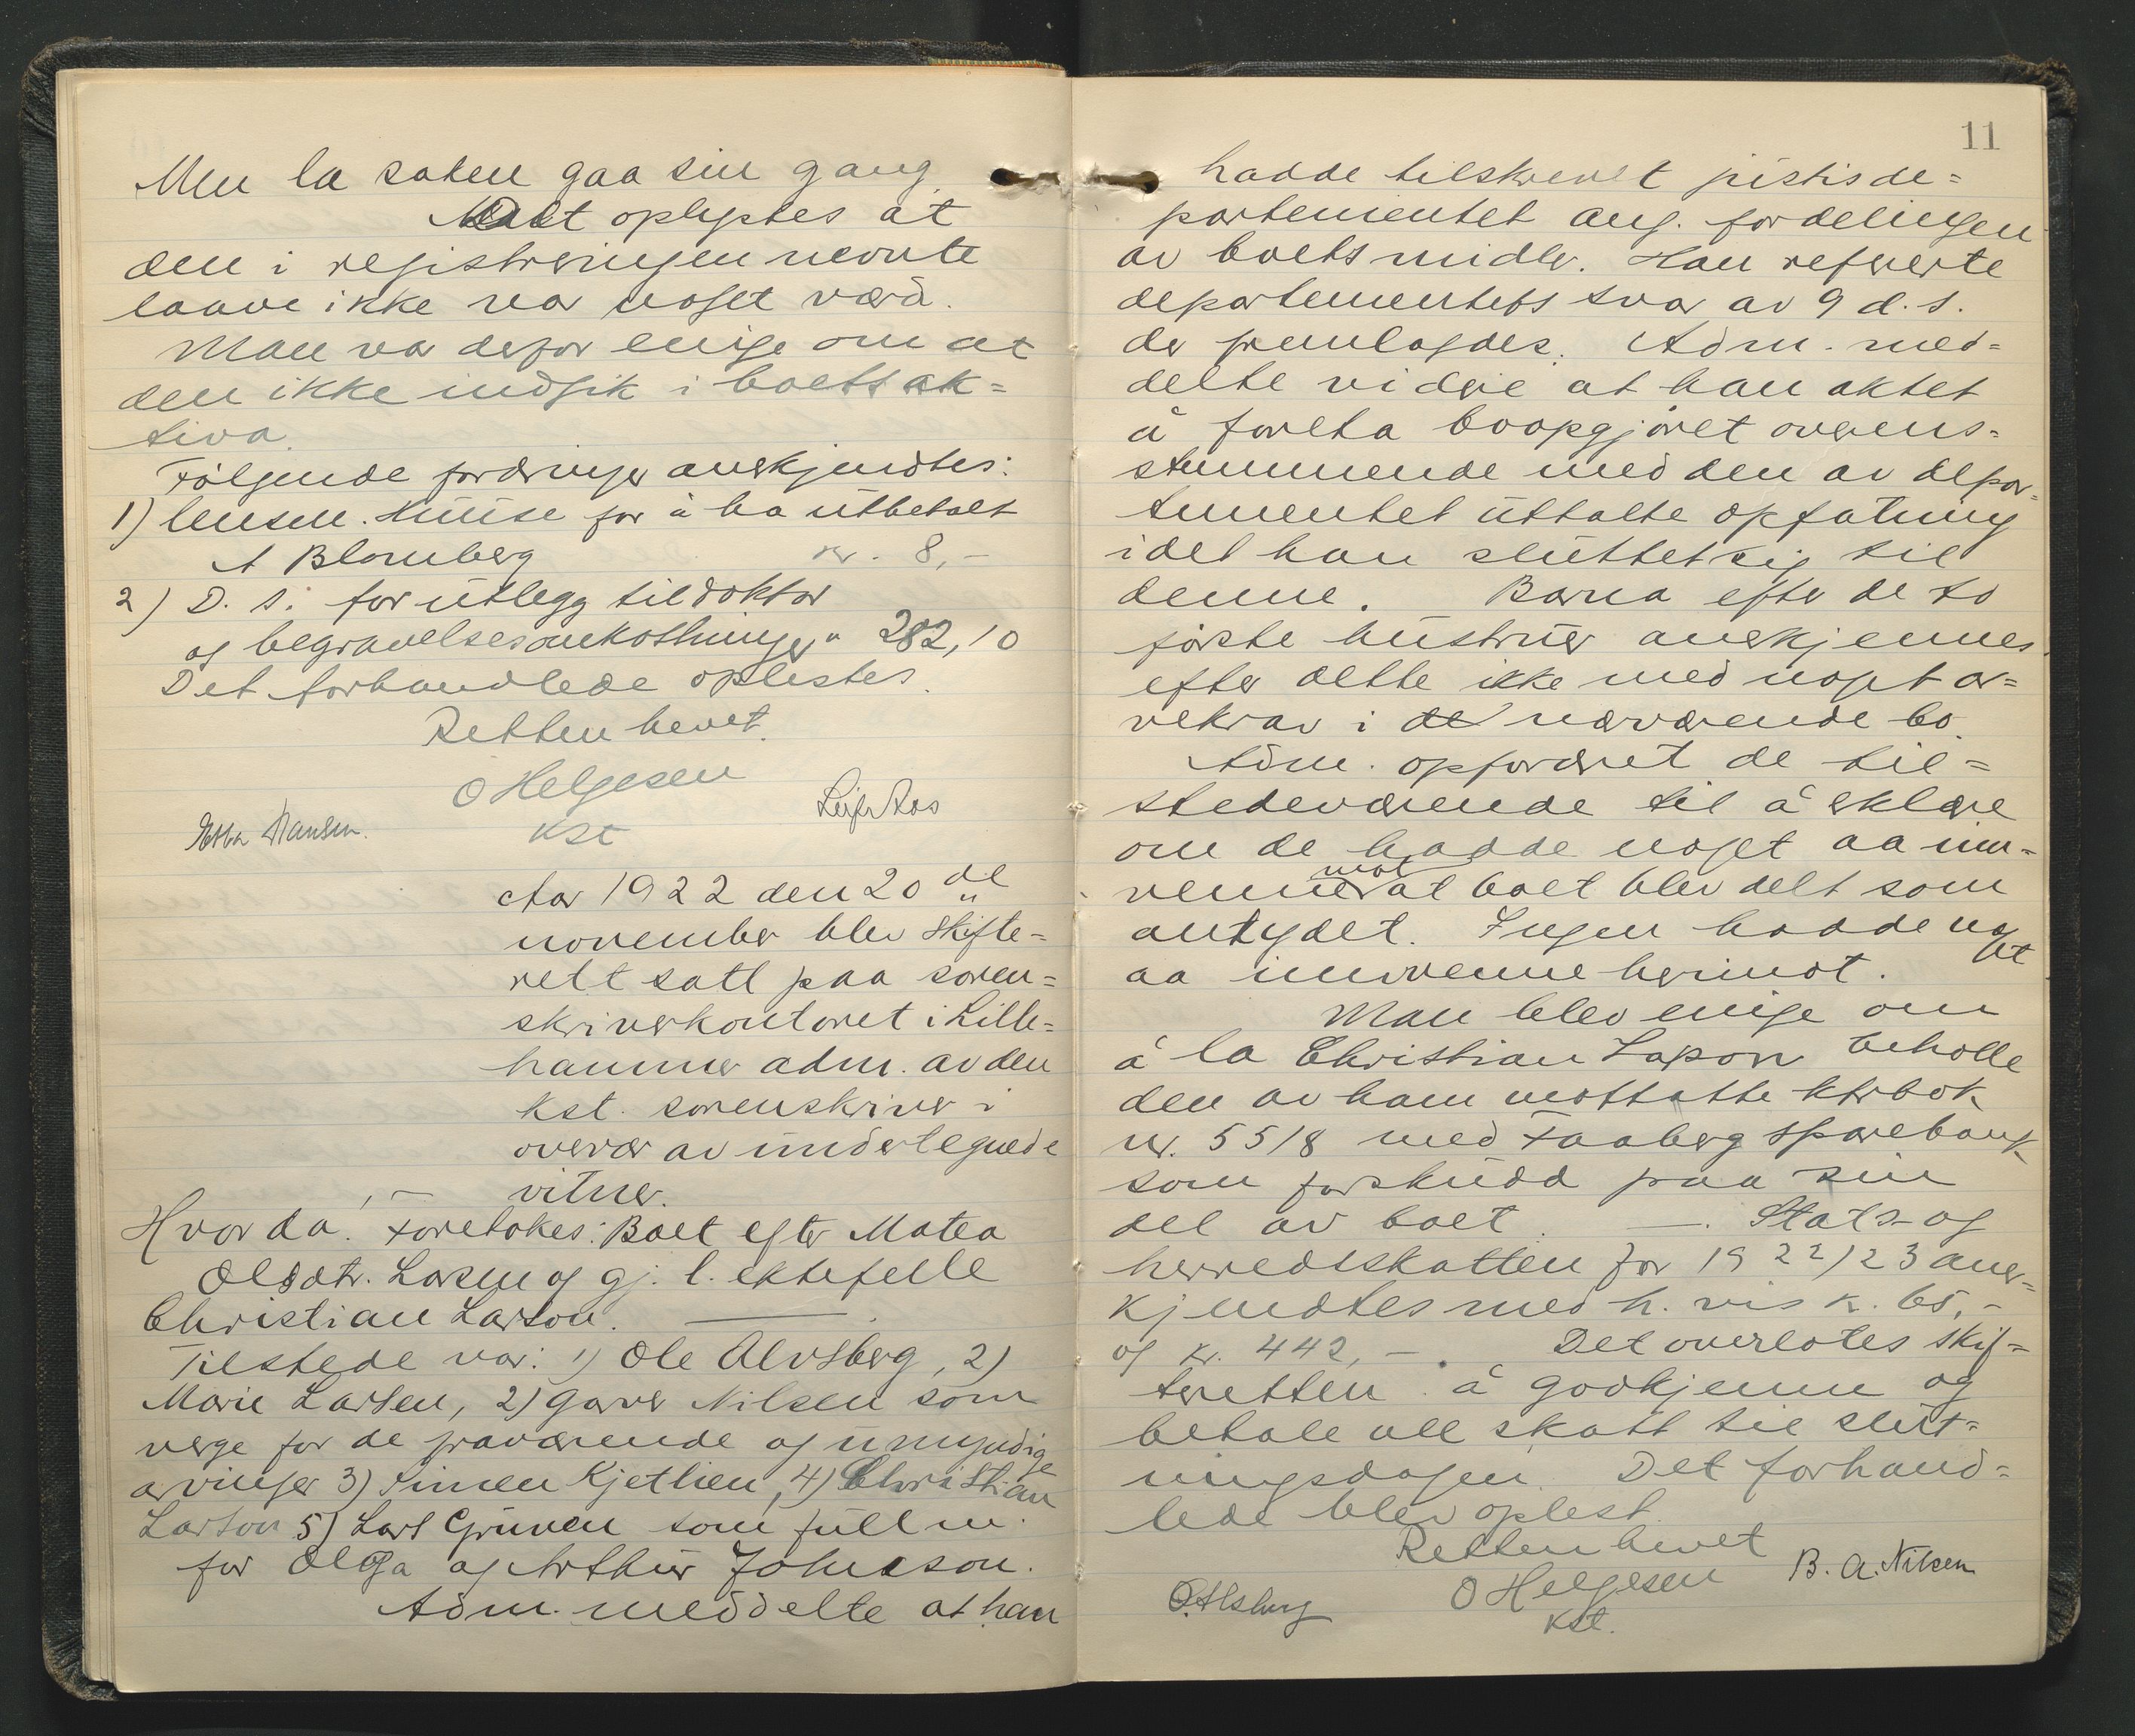 Men la saken gaa sin gang.
Det oplystes at
den i registreringen nevnte
laave ikke var noget værd.
Man var derfor enige om at
den ikke indgik i boets ak=
tiva.
Følgende fordringer anerkjendtes:
1) lensm. Huuse for å ha utbetalt
A Blomberg kr. 8,-
2) D. s. for utlegg til doktor
og begravelsesomkostninger " 282,10
Det forhandlede oplestes.
Retten hevet.
O Helgesen
kst
Leif Aos
Ebba Hansen.
Aar 1922 den 20 de
november blev skifte=
rett satt paa soren=
skriverkontoret i Lille=
hammer adm. av den
kst. sorenskriver i
overvær av undertegnede
vitner.
Hvorda! Foretokes: Boet efter Matea
Olsdtr. Larsen og gj. l. ektefelle
Christian Larson.
Tilstede var: 1) Ole Alvsberg, 2)
Marie Larsen, 2) garver Nilsen som
verge for de fraværende og umyndige
arvinger 3) Simen Kjetlien, 4) Christian
Larson 5) Lars Gruven som fullm.
for Olga og Arthur Johnsson.
Adm. meddelte at han
11
hadde tilskrevet justisde=
partementet ang. fordelingen
av boets midler. Han refererte
departementets svar av 9 d.s.
der fremlagdes. Adm. med=
delte videre at han aktet
å foreta boopgjøret overens=
stemmende med den av depar=
tementet uttalte opfatning
idet han sluttet sig til
denne. Barna efter de to
første hustruer anerkjennes
efter dette ikke med noget ar=
vekrav i de nærværende bo.
Adm. opfordret de til=
stedeværende til å erklære
om de hadde noget aa inn=
venne mot at boet blev delt som
antydet. Ingen hadde noget
aa innvenne herimot.
Man blev enige om
å la Christian Larson beholle
den av ham mottatte ktrbok
nr. 5518 med Faaberg sparebank
som forskudd paa sin
del av boet. Stats- og
herredsskatten for 1922/23 aner=
kjendtes med h. vis k. 65,-
og kr. 442,-. Det overlotes skif=
teretten å godkjenne og
betale all skatt til slut=
ningsdagen. Det forhand=
lede blev oplest.
Retten hevet
O Helgesen
kst.
B. A. Nilsen
O. Alsberg